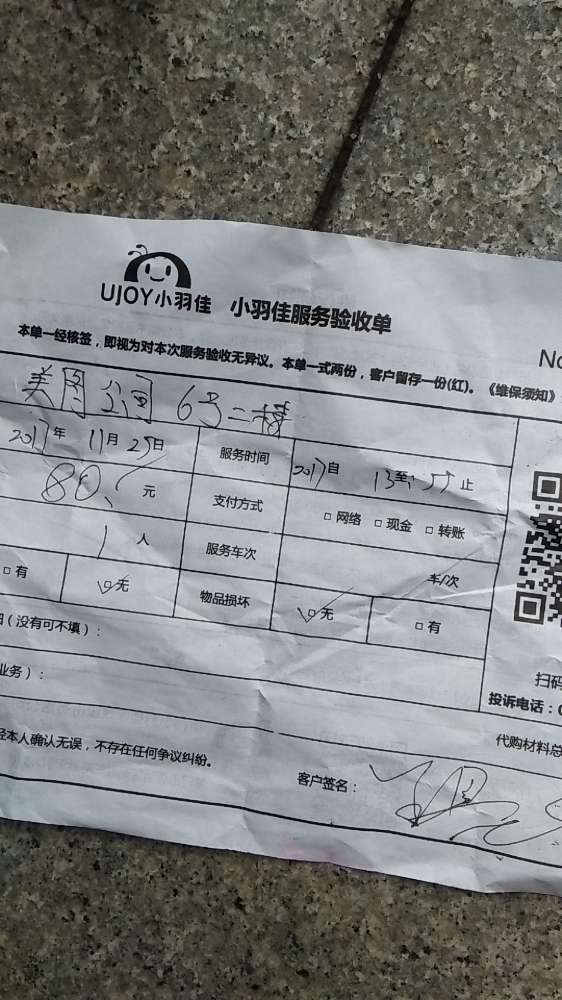 UJOY小羽佳 小羽佳服务验收单
No
本单一经核签，即视为对本次服务验收无异议。本单一式两份，客户留存一份(红)。《维保须知》
美图公司 6号二楼
2017年 11月25日 服务时间 2017自 13至 止
80 元 支付方式 □ 网络 □ 现金 □ 转账
1 人 服务车次 车/次
□ 有 □ 无 物品损坏 □ 无 □ 有
(没有可不填)：
业务)：
扫码
投诉电话：0
代购材料总
经本人确认无误，不存在任何争议纠纷。
客户签名：